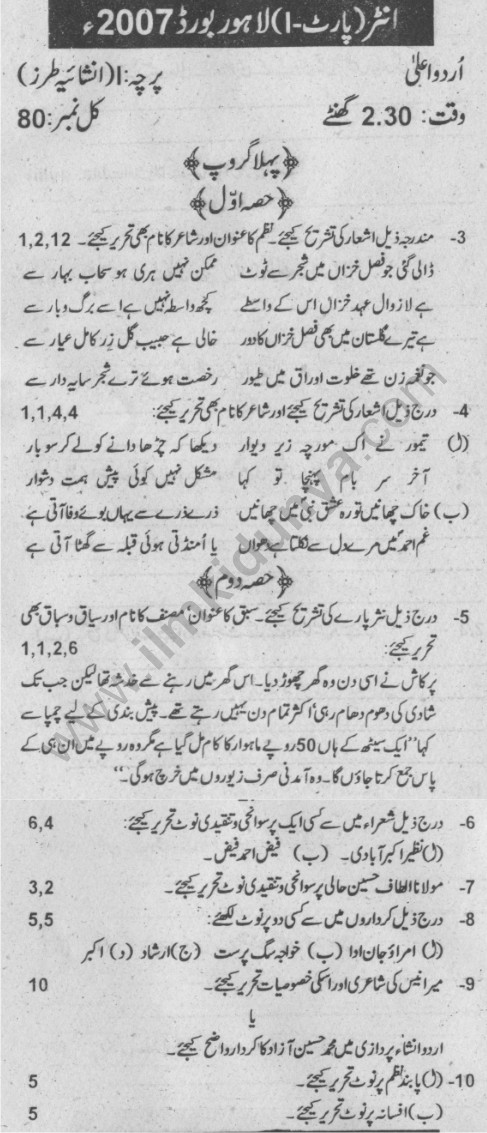 انٹر (پارٹ-I) لاہور بورڈ 2007ء
اُردو اعلیٰ
پرچہ: I (انشائیہ طرز)
وقت: 2.30 گھنٹے
کل نمبر: 80
﴿پہلا گروپ﴾
﴿حصہ اوّل﴾
3- مندرجہ ذیل اشعار کی تشریح کیجئے۔ نظم کا عنوان اور شاعر کا نام بھی تحریر کیجئے۔ 1,2,12
ڈالی گئی جو فصل خزاں میں شجر سے ٹوٹ ممکن نہیں ہری ہو سحاب بہار سے
ہے لازوال عہد خزاں اس کے واسطے کچھ واسطہ نہیں ہے اسے برگ و بار سے
ہے تیرے گلستان میں بھی فصل خزاں کا دور خالی ہے جیب گل زر کامل عیار سے
جو نغمہ زن تھے خلوت اوراق میں طیور رخصت ہوئے ترے شجر سایہ دار سے
4- درج ذیل اشعار کی تشریح کیجئے اور شاعر کا نام بھی تحریر کیجئے: 1,1,4,4
(ا) تیمور نے اک مورچہ زیر دیوار دیکھا کہ چڑھا دانے کو لے کر سو بار
آخر سر بام پہنچا تو کہا مشکل نہیں کوئی پیش ہمت دشوار
(ب) خاک چھانیں تو رہ عشق نبیؐ میں چھانیں ذرے ذرے سے یہاں بوئے وفا آتی ہے
غم احمدؐ میں مرے دل سے نکلتا ہے دھواں یا اُمنڈتی ہوئی قبلہ سے گھٹا آتی ہے
﴿حصہ دوم﴾
5- درج ذیل نثر پارے کی تشریح کیجئے۔ سبق کا عنوان' مصنف کا نام اور سیاق و سباق بھی
تحریر کیجئے: 1,1,2,6
پرکاش نے اسی دن وہ گھر چھوڑ دیا۔ اس گھر میں رہنے سے خدشہ تھا لیکن جب تک
شادی کی دھوم دھام رہی' اکثر تمام دن یہیں رہتے تھے۔ پیش بندی کے لیے چمپا سے
کہا "ایک سیٹھ کے ہاں 50 روپے ماہوار کا کام مل گیا ہے مگر وہ روپے میں ان ہی کے
پاس جمع کرتا جاؤں گا۔ وہ آمدنی صرف زیوروں میں خرچ ہوگی۔"
6- درج ذیل شعراء میں سے کسی ایک پر سوانحی و تنقیدی نوٹ تحریر کیجئے: 6,4
(ا) نظیر اکبر آبادی۔ (ب) فیض احمد فیض۔
7- مولانا الطاف حسین حالی پر سوانحی و تنقیدی نوٹ تحریر کیجئے۔ 3,2
8- درج ذیل کرداروں میں سے کسی دو پر نوٹ لکھئے: 5,5
(ا) امراؤ جان ادا (ب) خواجہ سگ پرست (ج) ارشاد (د) اکبر
9- میر انیس کی شاعری اور اسکی خصوصیات تحریر کیجئے۔ 10
یا
اردو انشاء پردازی میں محمد حسین آزاد کا کردار واضح کیجئے۔
10- (ا) پابند نظم پر نوٹ تحریر کیجئے۔ 5
(ب) افسانہ پر نوٹ تحریر کیجئے۔ 5
www.ilmkidunya.com